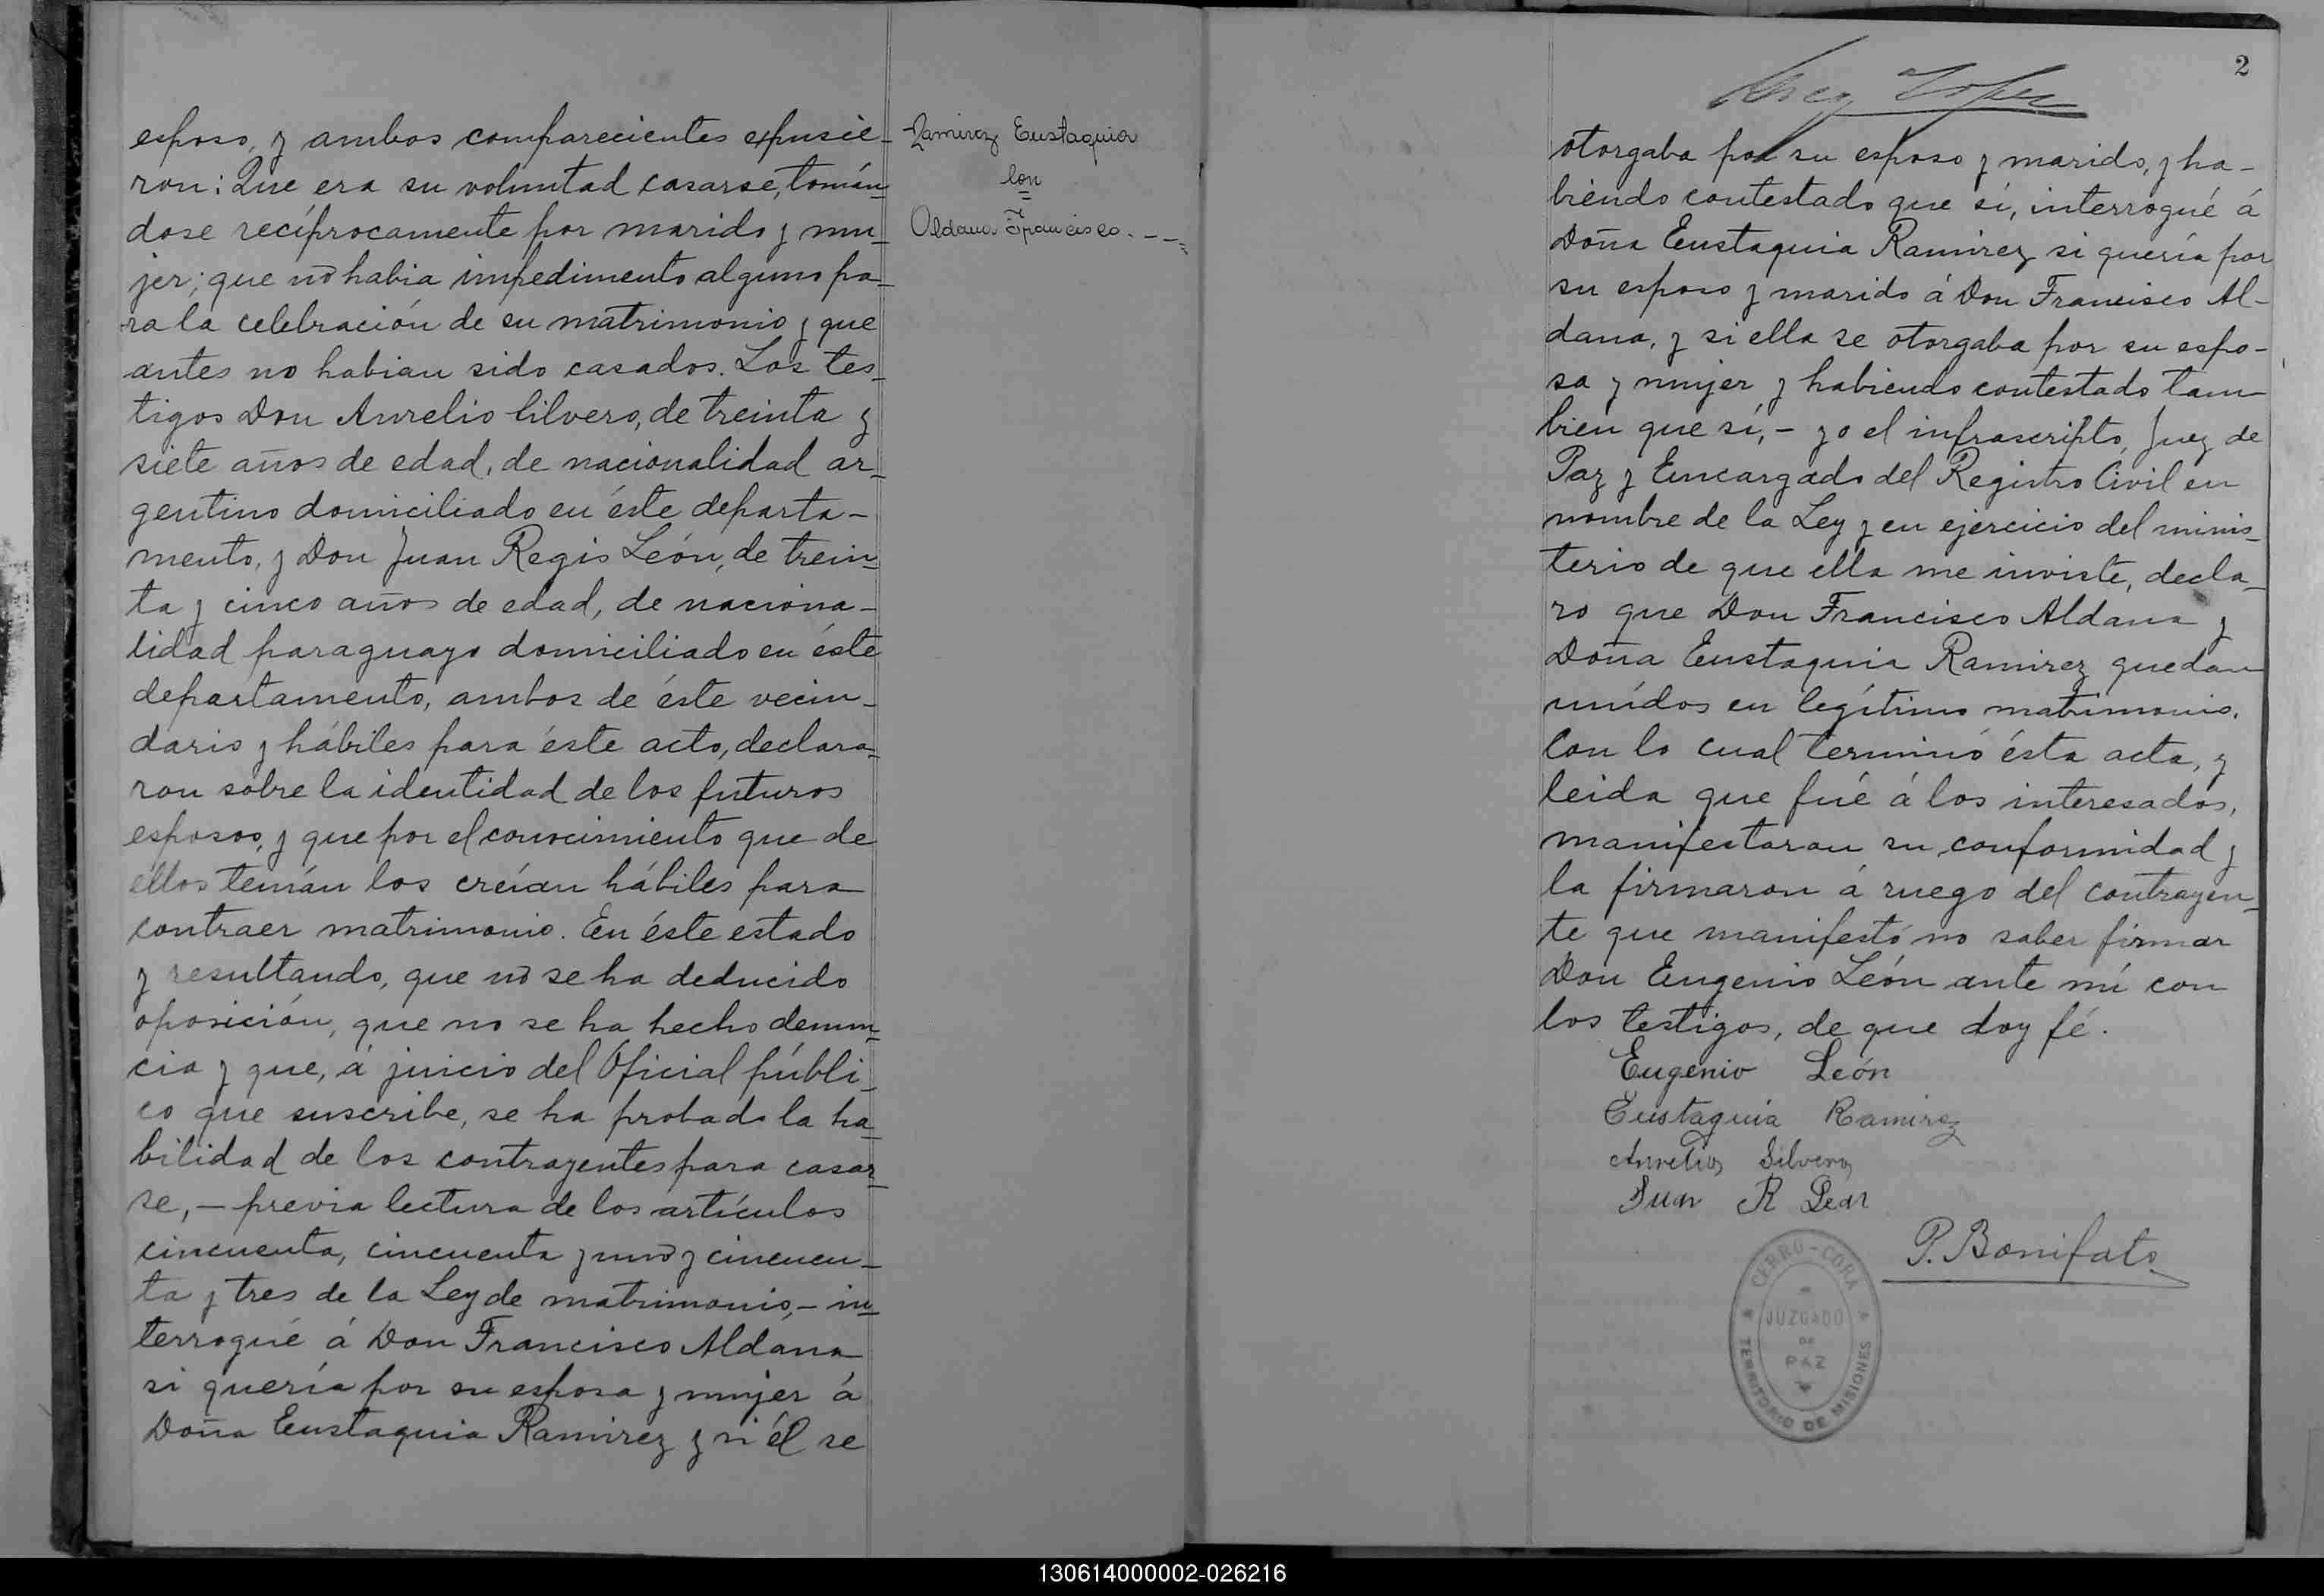 esposo, y ambos comparecientes expusie-
ron: Que era su voluntad casarse, tomán-
dose recíprocamente por marido y mu-
jer; que no habia impedimento alguno pa-
ra la celebración de su matrimonio y que
antes no habian sido casados. Los tes-
tigos Don Aurelio Cilvero, de treinta y
siete años de edad, de nacionalidad ar-
gentino domiciliado en éste departa-
mento, y Don Juan Regis León, de trein-
ta y cinco años de edad, de naciona-
lidad paraguayo domiciliado en éste
departamento, ambos de éste vecin-
dario y hábiles para éste acto, declara-
ron sobre la identidad de los futuros
esposos, y que por el conocimiento que de
éllos tenían los creían hábiles para
contraer matrimonio. En éste estado
y resultando, que no se ha deducido
oposición, que no se ha hecho denun-
cia y que, á juicio del Oficial públi-
co que suscribe, se ha probado la ha-
bilidad de los contrayentes para casar-
se, - previa lectura de los artículos
cincuenta, cincuenta y uno y cincuen-
ta y tres de la Ley de matrimonio, - in-
terrogué á Don Francisco Aldana
si quería por su esposa y mujer á
Doña Eustaquia Ramirez y si él se
Ramirez Eustaquia
Con
Aldana Francisco. - -
2
otorgaba por su esposo y marido, y ha-
biendo contestado que sí, interrogué á
Doña Eustaquia Ramirez si quería por
su esposo y marido á Don Francisco Al-
dana, y si ella se otorgaba por su espo-
sa y mujer y habiendo contestado tam-
bien que sí, - yo el infrascripto, Juez de
Paz y Encargado del Registro Civil en
nombre de la Ley y en ejercicio del minis-
terio de que ella me inviste, decla-
ro que Don Francisco Aldana y
Doña Eustaquia Ramirez quedan
unídos en legítimo matrimonio.
Con lo cual terminó ésta acta, y
leida que fué á los interesados,
manifestaron su conformidad y
la firmaron á ruego del contrayen-
te que manifestó no saber firmar
Don Eugenio León ante mí con
los testigos, de que doy fé.
Eugenio León
Eustaquia Ramirez
Aurelio Silvero
Juan R Leon
P. Bonifato
CERRO-CORA
JUZGADO
DE
PAZ
TERRITORIO DE MISIONES
130614000002-026216